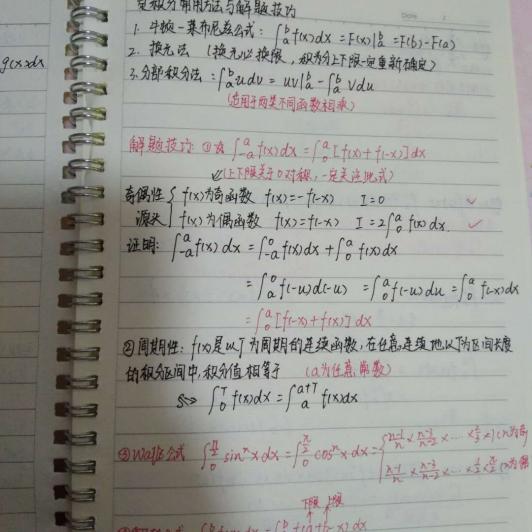 g(x)dx
定积分常用方法与解题技巧
1. 牛顿-莱布尼兹公式: ∫_a^b f(x)dx = F(x)|_a^b = F(b)-F(a)
2. 换元法 (换元必换限, 积分上下限一定重新确定)
3. 分部积分法: ∫_a^b u dv = uv|_a^b - ∫_a^b v du
(适用于两类不同函数相乘)
解题技巧: ① ☆ ∫_{-a}^a f(x)dx = ∫_0^a [f(x)+f(-x)]dx
(上下限关于0对称, 一定关注此式)
奇偶性 { f(x)为奇函数 f(x)=-f(-x) I=0 ✓
源头 f(x)为偶函数 f(x)=f(-x) I=2∫_0^a f(x)dx. ✓
证明: ∫_{-a}^a f(x)dx = ∫_{-a}^0 f(x)dx + ∫_0^a f(x)dx
= ∫_a^0 f(-u)d(-u) = ∫_0^a f(-u)du = ∫_0^a f(-x)dx
= ∫_0^a [f(-x)+f(x)]dx
② 周期性: f(x)是以T为周期的连续函数, 在任意连续地以T为区间长度
的积分区间中, 积分值相等 (a为任意常数)
∫_0^T f(x)dx = ∫_a^{a+T} f(x)dx
③ Wallis公式 ∫_0^{π/2} sin^n x dx = ∫_0^{π/2} cos^n x dx = { n-1/n × n-3/n-2 × … × 2/3 × 1 (n为奇
n-1/n × n-3/n-2 × … × 1/2 × π/2 (n为偶
下限 上限